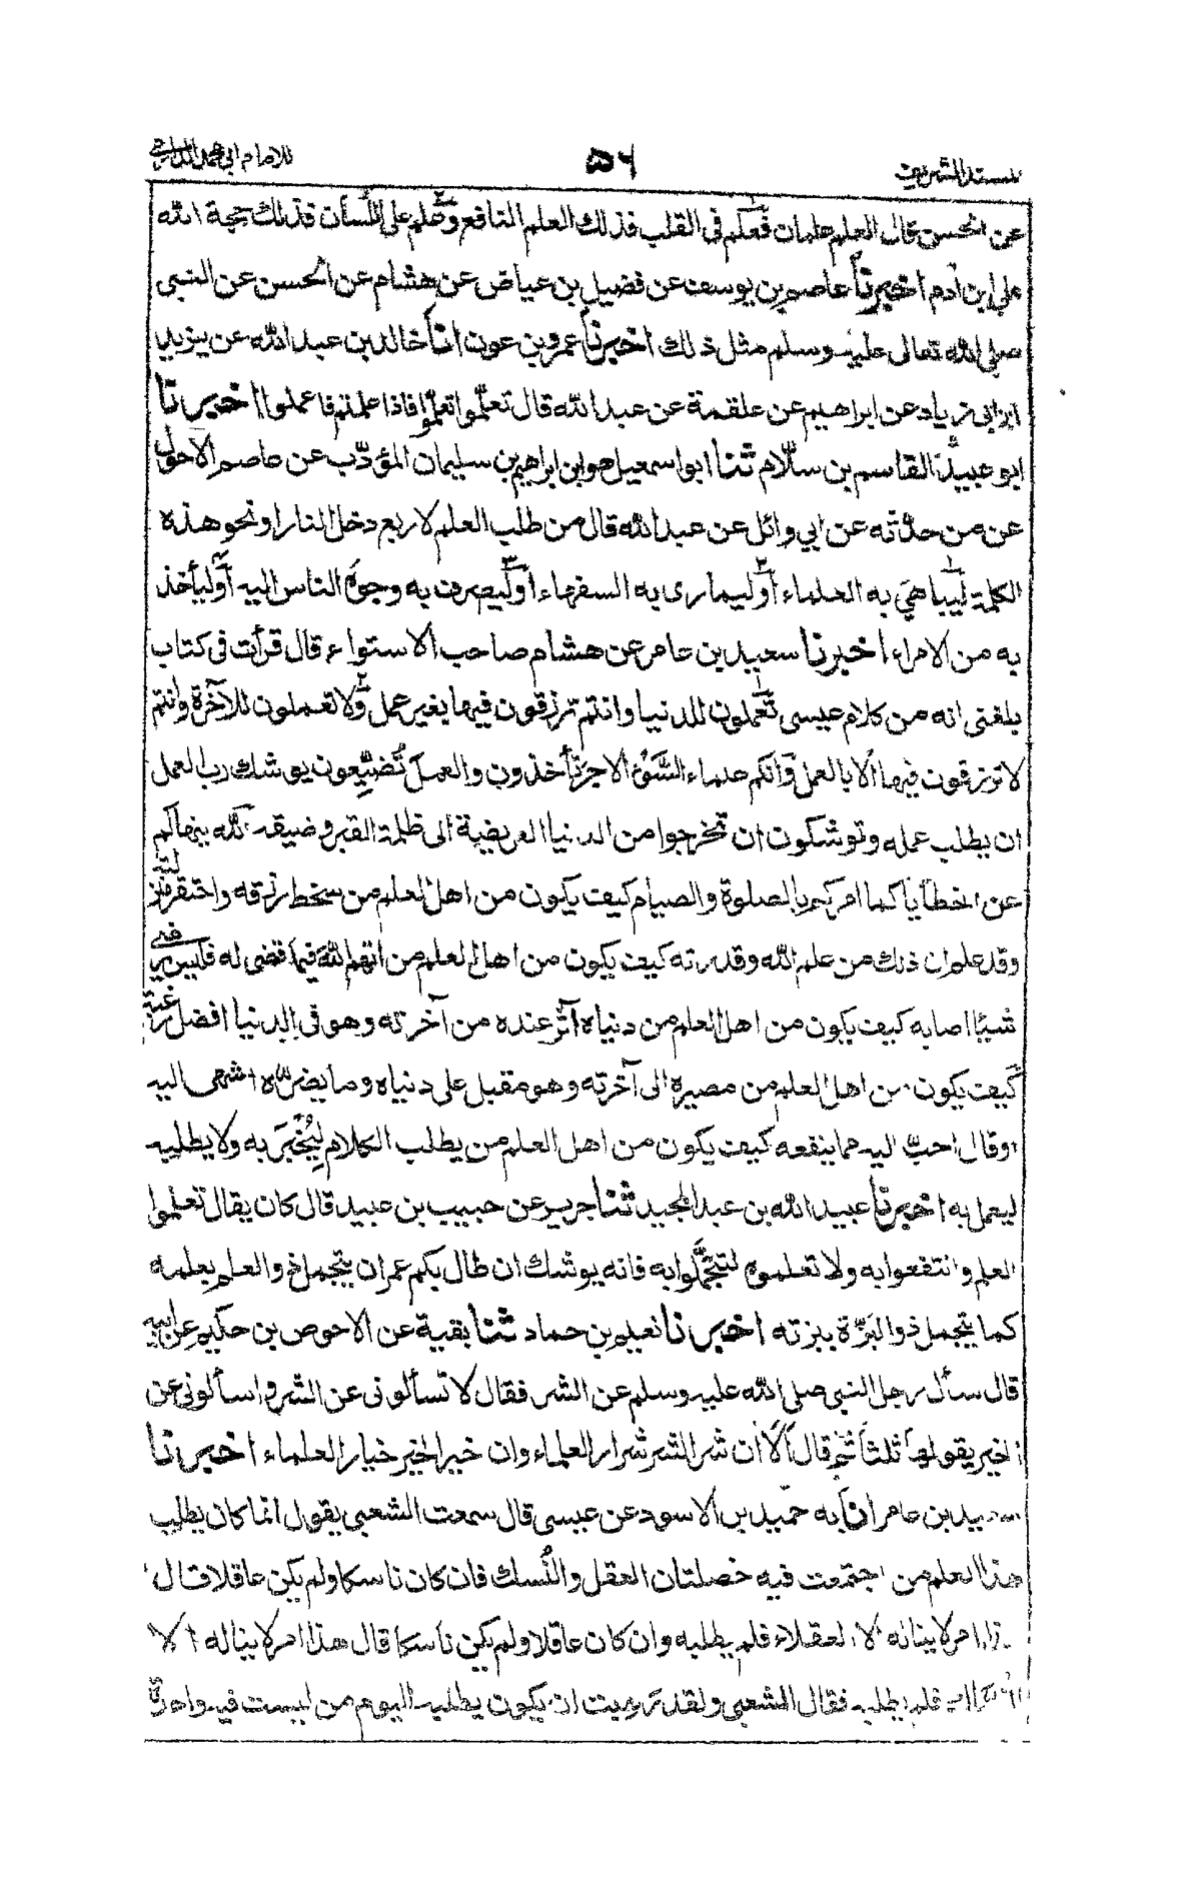 مسند الشريف ۵۶ للامام ابي محمد الدارمي
عن الحسن قال العلم علمان فعلم في القلب فذلك العلم النافع وعلم على اللسان فذلك حجة الله
على ابن آدم اخبرنا عاصم بن يوسف عن فضيل بن عياض عن هشام عن الحسن عن النبي
صلى الله تعالى عليه وسلم مثل ذلك اخبرنا عمرو بن عون انا خالد بن عبد الله عن يزيد
ابن ابي زياد عن ابراهيم عن علقمة عن عبد الله قال تعلموا تعلموا فاذا علمتم فاعملوا اخبرنا
ابو عبيد القاسم بن سلّام ثنا ابو اسمعيل هو ابن ابراهيم بن سليمان المؤدّب عن عاصم الاحول
عن من حدثه عن ابي وائل عن عبد الله قال من طلب العلم لاربع دخل النار او نحو هذه
الكلمة ليباهي به العلماء او ليماري به السفهاء او ليصرف به وجوه الناس اليه او ليأخذ
به من الامراء اخبرنا سعيد بن عامر عن هشام صاحب الاستواء قال قرأت في كتاب
بلغني انه من كلام عيسى تعملون للدنيا وانتم ترزقون فيها بغير عمل ولا تعملون للآخرة وانتم
لا ترزقون فيها الا بالعمل وانكم علماء السَّوْء الاجر تأخذون والعمل تُضيِّعون يوشك رب العمل
ان يطلب عمله وتوشكون ان تخرجوا من الدنيا العريضة الى ظلمة القبر وضيقه الله ينهاكم
عن الخطايا كما امركم بالصلوة والصيام كيف يكون من اهل العلم من سخط رزقه واحتقر منزلته
وقد علم ان ذلك من علم الله وقدرته كيف يكون من اهل العلم من اتهم الله فيما قضى له فليس يرضى
شيئا اصابه كيف يكون من اهل العلم من دنياه آثر عنده من آخرته وهو في الدنيا افضل رغبة
كيف يكون من اهل العلم من مصيره الى آخرته وهو مقبل على دنياه وما يضره اشهى اليه
اوقال احبّ اليه مما ينفعه كيف يكون من اهل العلم من يطلب الكلام لِيُخْبَرَ به ولا يطلبه
ليعمل به اخبرنا عبيد الله بن عبد المجيد ثنا جرير عن حبيب بن عبيد قال كان يقال تعلموا
العلم وانتفعوا به ولا تعلموه لتتجمَّلوا به فانه يوشك ان طال بكم عمر ان يتجمل ذو العلم بعلمه
كما يتجمل ذو البَزّة ببزته اخبرنا نعيم بن حماد ثنا بقية عن الاحوص بن حكيم عن ابيه
قال سأل رجل النبي صلى الله عليه وسلم عن الشر فقال لا تسألوني عن الشر واسألوني عن
الخير يقولها ثلثا ثم قال ألا ان شر الشر شرار العلماء وان خير الخير خيار العلماء اخبرنا
سعيد بن عامر انا به حميد بن الاسود عن عيسى قال سمعت الشعبي يقول انما كان يطلب
هذا العلم من اجتمعت فيه خصلتان العقل والنُسك فان كان ناسكا ولم يكن عاقلا قال
هذا امر لا يناله الا العقلاء فلم يطلبه وان كان عاقلا ولم يكن ناسكا قال هذا امر لا يناله الا
النساك فلم يطلبه فقال الشعبي ولقد رهبت ان يكون يطلبه اليوم من ليست فيه واحدة